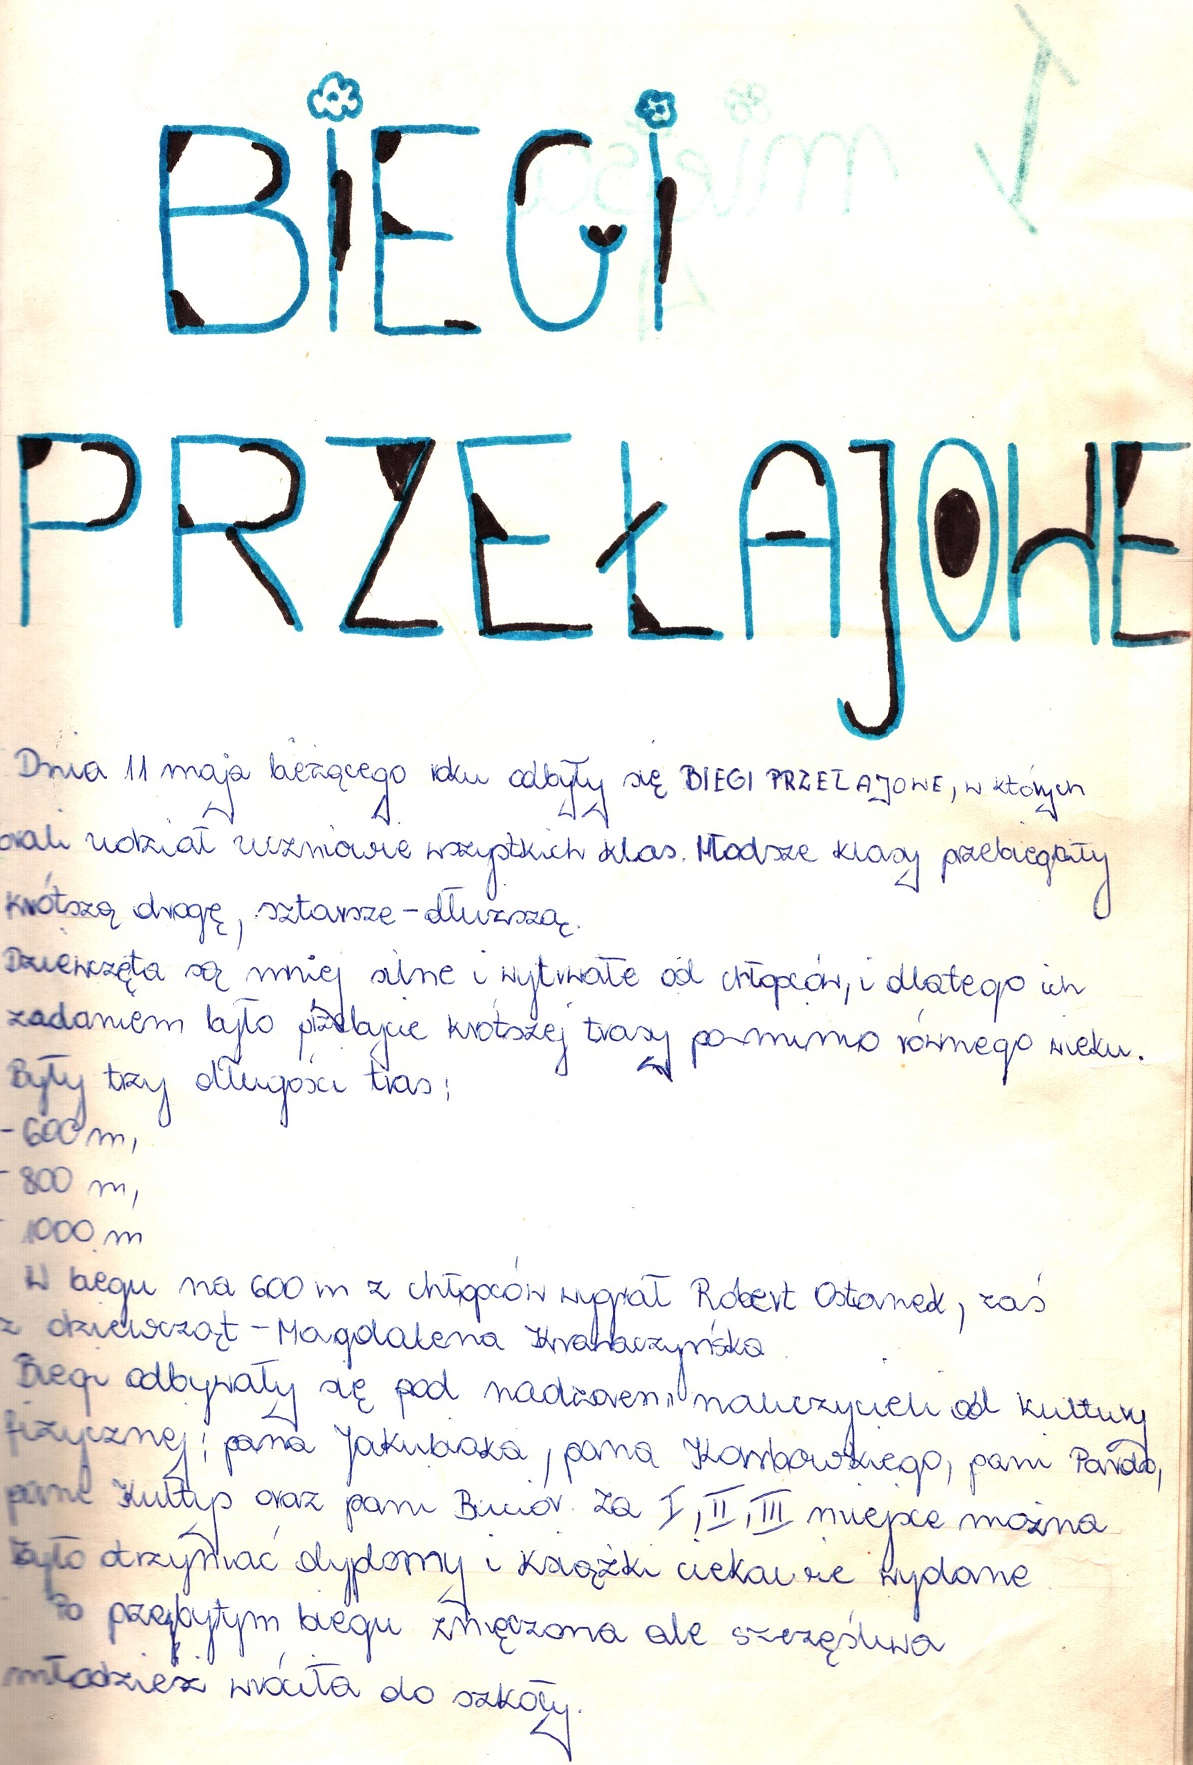 BIEGI
PRZEŁAJOWE
Dnia 11 maja bieżącego roku odbyły się BIEGI PRZEŁAJOWE, w których
brali udział uczniowie wszystkich klas. Młodsze klasy przebiegały
krótszą drogę, sztarsze - dłuższą.
Dziewczęta są mniej silne i wytrwałe od chłopców, i dlatego ich
zadaniem było przebycie krótszej trasy pomimo równego wieku.
Były trzy długości tras:
- 600 m,
- 800 m,
- 1000 m
W biegu na 600 m z chłopców wygrał Robert Ostanek, zaś
z dziewcząt - Magdalena
Biegi odbywały się pod nadzorem nauczycieli od kultury
fizycznej: pana Jakubiaka, pana Kombowskiego, pani
pani oraz pani Za I, II, III miejsce można
było otrzymać dyplomy i książki ciekawie wydane
Po przebytym biegu zmęczona ale szczęśliwa
młodzież wróciła do szkoły.